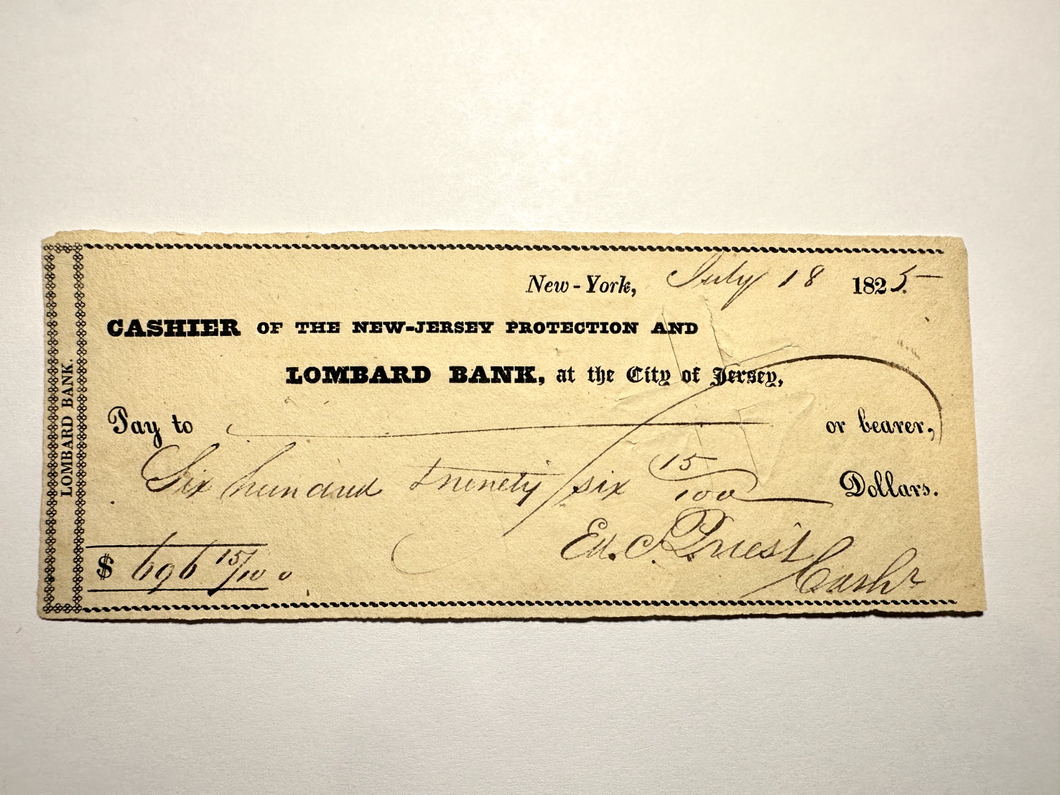 New-York, July 18 1825
CASHIER OF THE NEW-JERSEY PROTECTION AND
LOMBARD BANK, at the City of Jersey,
Pay to or bearer,
Six hundred & ninety six 15/100 Dollars.
$ 696 15/100
Ed. C. Priest
Cashr
LOMBARD BANK.